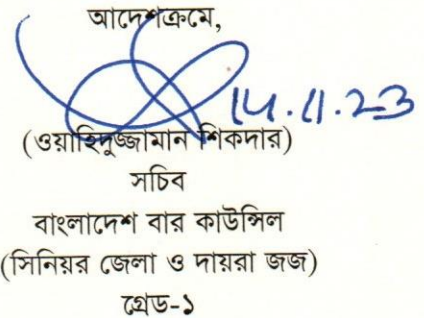 আদেশক্রমে,
14.11.23
(ওয়াহিদুজ্জামান শিকদার)
সচিব
বাংলাদেশ বার কাউন্সিল
(সিনিয়র জেলা ও দায়রা জজ)
গ্রেড-১